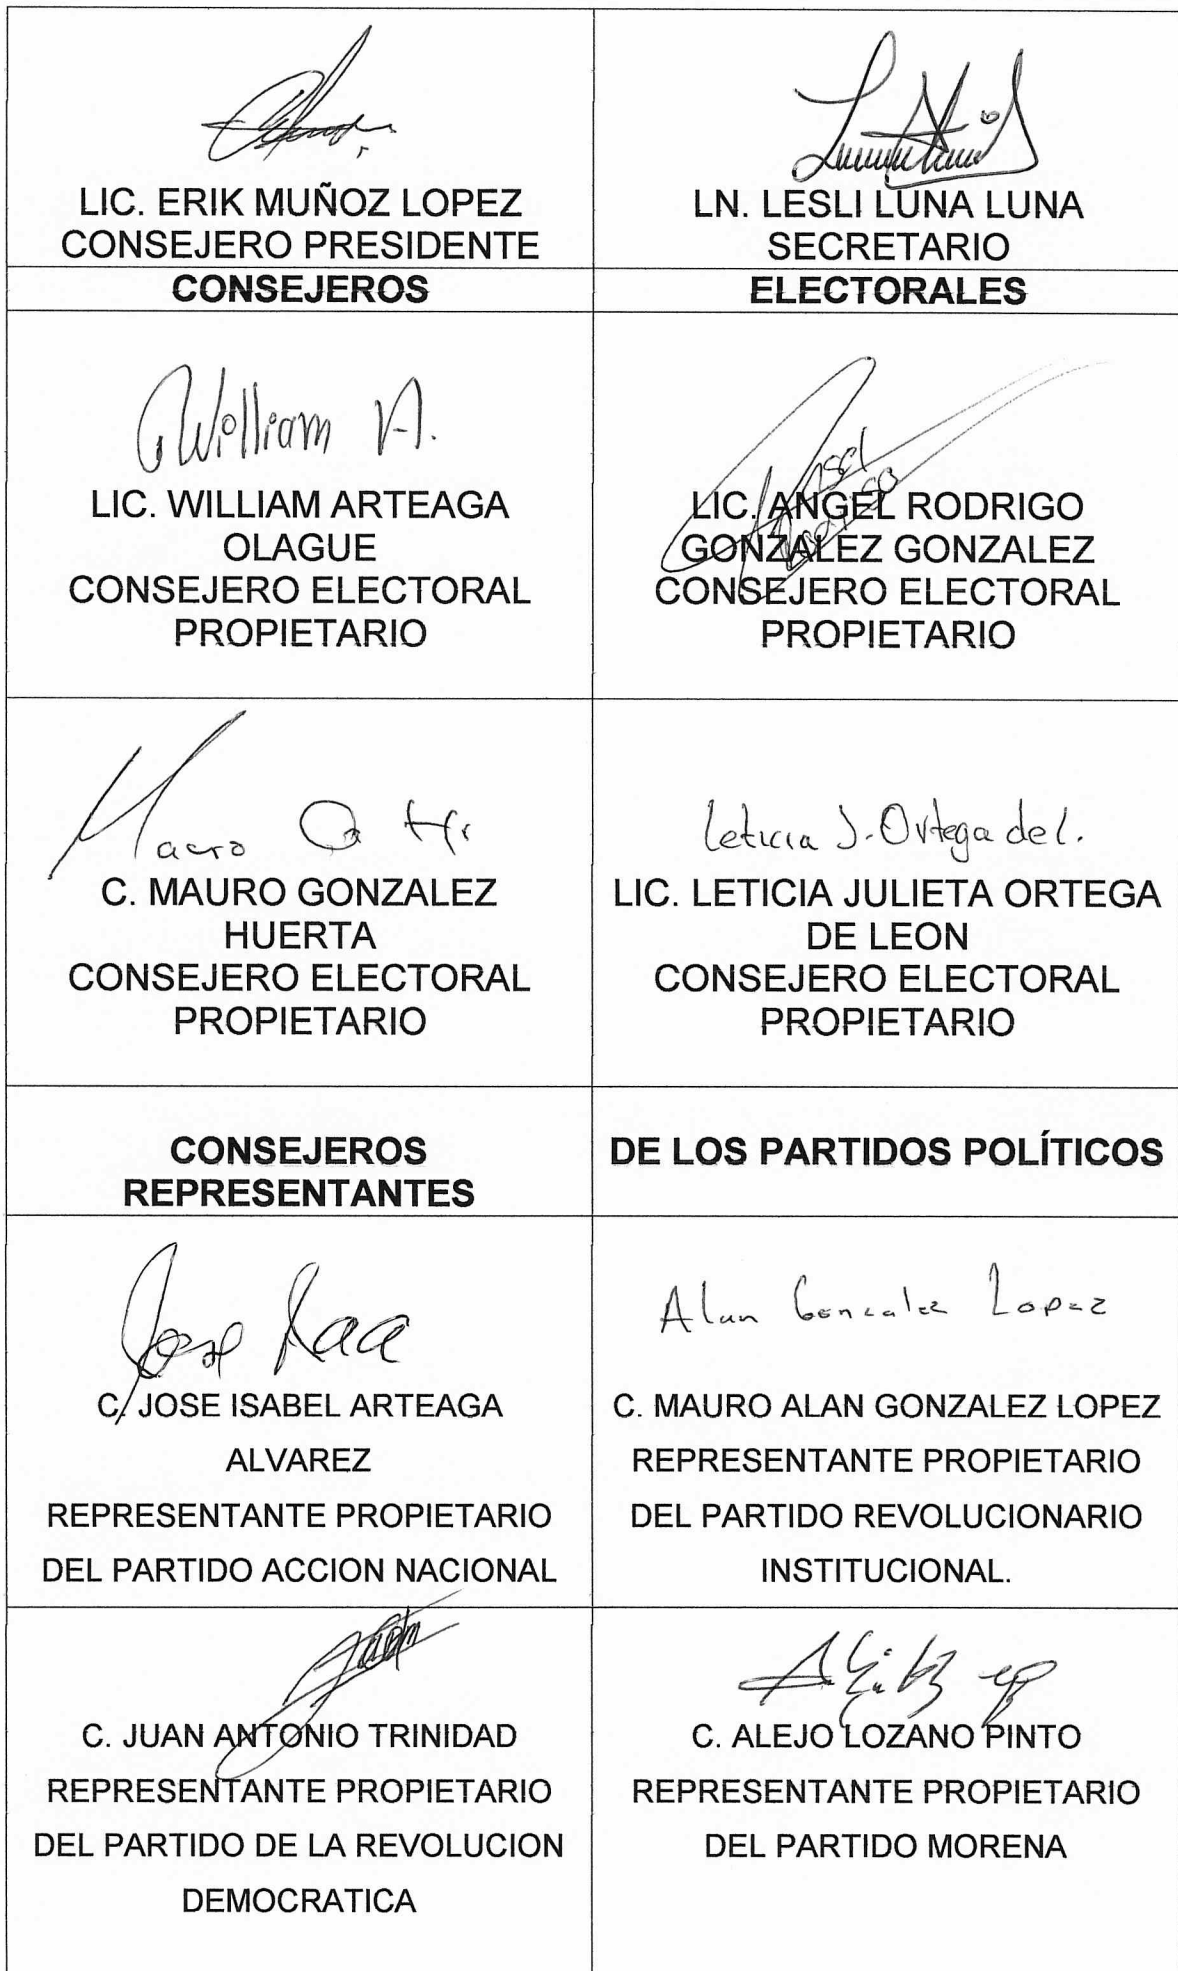 LIC. ERIK MUÑOZ LOPEZ
CONSEJERO PRESIDENTE
LN. LESLI LUNA LUNA
SECRETARIO
CONSEJEROS
ELECTORALES
William A.
LIC. WILLIAM ARTEAGA
OLAGUE
CONSEJERO ELECTORAL
PROPIETARIO
LIC. ANGEL RODRIGO
GONZALEZ GONZALEZ
CONSEJERO ELECTORAL
PROPIETARIO
C. MAURO GONZALEZ
HUERTA
CONSEJERO ELECTORAL
PROPIETARIO
Leticia J. Ortega de l.
LIC. LETICIA JULIETA ORTEGA
DE LEON
CONSEJERO ELECTORAL
PROPIETARIO
CONSEJEROS
REPRESENTANTES
DE LOS PARTIDOS POLÍTICOS
Jose
C. JOSE ISABEL ARTEAGA
ALVAREZ
REPRESENTANTE PROPIETARIO
DEL PARTIDO ACCION NACIONAL
Alan Gonzalez Lopez
C. MAURO ALAN GONZALEZ LOPEZ
REPRESENTANTE PROPIETARIO
DEL PARTIDO REVOLUCIONARIO
INSTITUCIONAL.
C. JUAN ANTONIO TRINIDAD
REPRESENTANTE PROPIETARIO
DEL PARTIDO DE LA REVOLUCION
DEMOCRATICA
C. ALEJO LOZANO PINTO
REPRESENTANTE PROPIETARIO
DEL PARTIDO MORENA